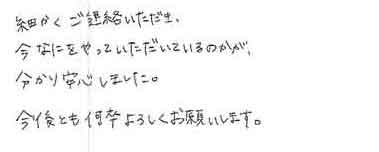 細かくご連絡いただき、
今なにをやっていただいているのかが、
分かり安心しました。
今後とも何卒よろしくお願いします。